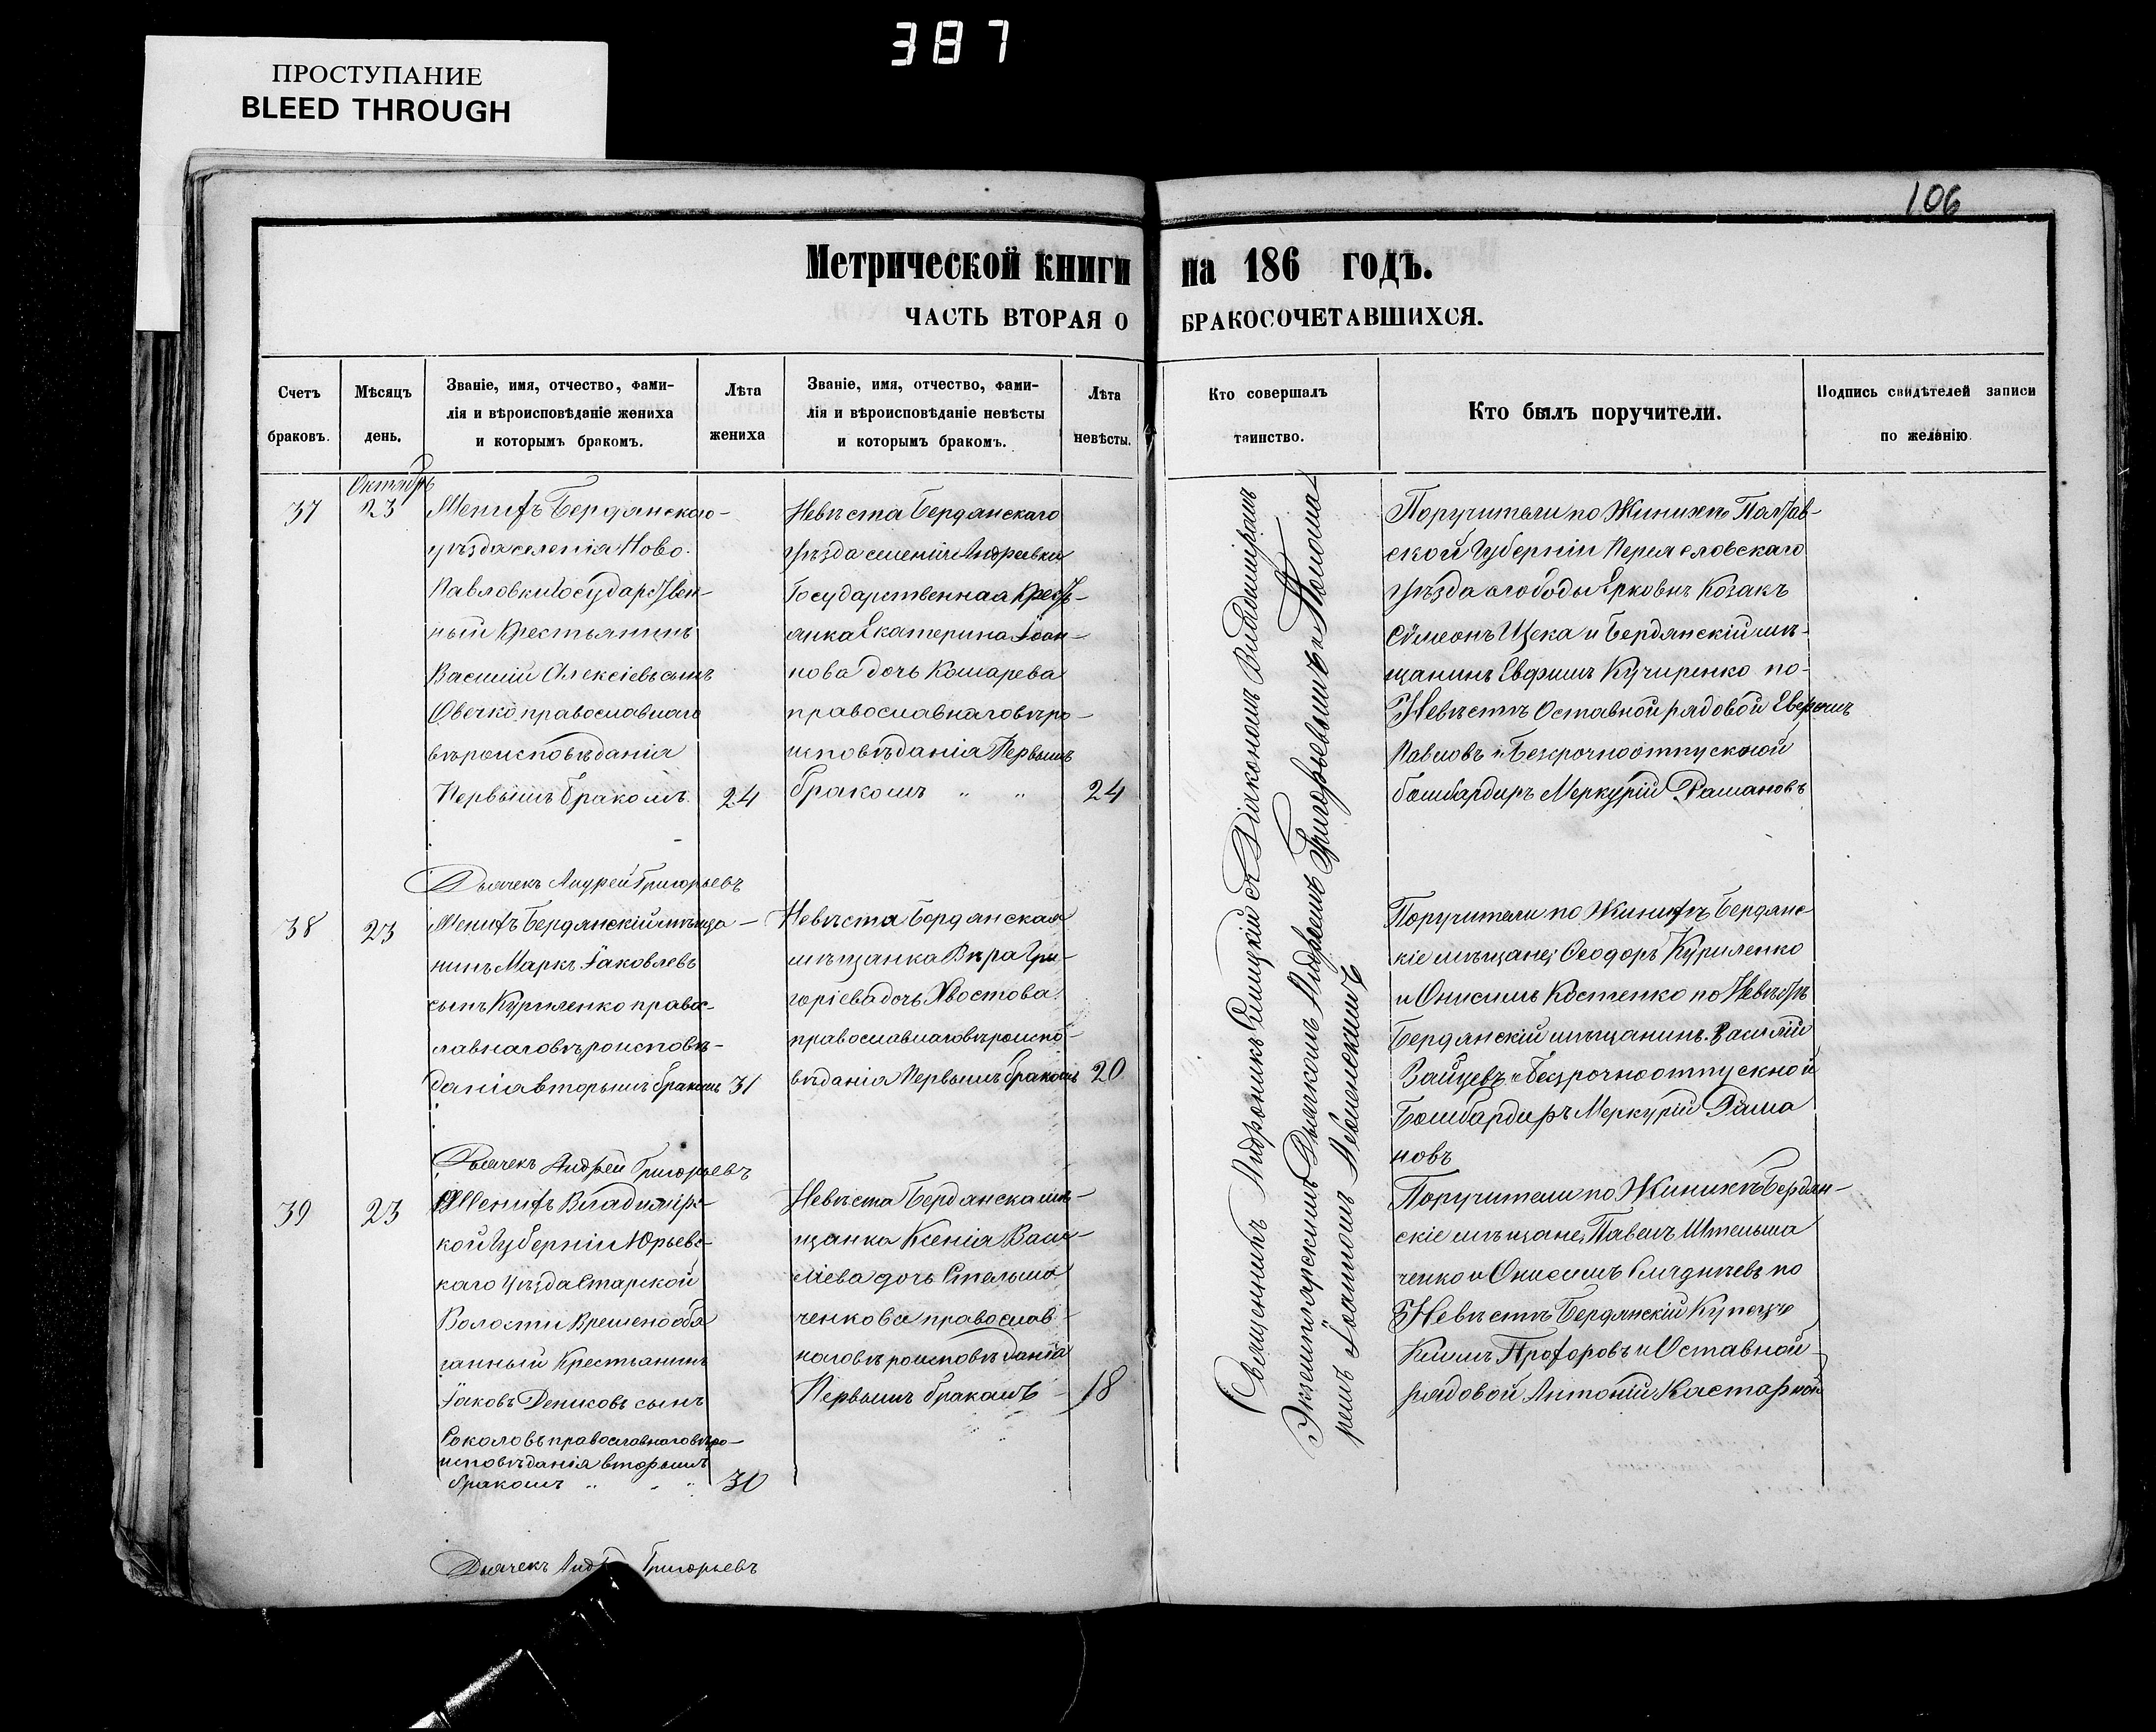 387
ПРОСТУПАНИЕ
BLEED THROUGH
106
Метрической книги на 186 годъ.
ЧАСТЬ ВТОРАЯ О БРАКОСОЧЕТАВШИХСЯ.
Счетъ
браковъ.
Мѣсяцъ
день.
Званіе, имя, отчество, фами-
лія и вѣроисповѣданіе жениха
и которымъ бракомъ.
Лѣта
жениха
Званіе, имя, отчество, фами-
лія и вѣроисповѣданіе невѣсты
и которымъ бракомъ.
Лѣта
невѣсты.
Кто совершалъ
таинство.
Кто былъ поручители.
Подпись свидѣтелей записи
по желанію
Октябрь
37
23
Женихъ Бердянскаго
уѣзда селенія Ново-
Павловки Государствен-
ный Крестьянинъ
Василій Алексіевъ сынъ
Овечко православнаго
вѣроисповѣданія
Первымъ бракомъ
24
Невѣста Бердянскаго
уѣзда селенія Андреевки
Государственная Кресть-
янка Екатерина Іоан-
нова дочь Комарева
православнаго вѣро-
исповѣданія Первымъ
бракомъ " "
24
Поручители по Женихѣ Полтав-
ской Губерніи Переяловскаго
уѣзда слободы Ерковъ Козакъ
Сѵмеонъ Щека и Бердянскій мѣ-
щанинъ Евфимъ Кучиренко по
Невѣстѣ Оставной рядовой
Павловъ и Безсрочноотпускной
бомбардиръ Меркурій Рамановъ
Дьячекъ Андрей Григорьевъ
38
23
Женихъ Бердянскій мѣща-
нинъ Маркъ Іаковлевъ
сынъ Куриленко правос-
лавнаго вѣроисповѣ-
данія вторымъ бракомъ
31
Невѣста Бердянская
мѣщанка Вѣра Гри-
горіева дочь Хвостова
православнаго вѣроиспо-
вѣданія Первымъ бракомъ
20
Поручители по Женихѣ Бердянс
кіе мѣщане; Ѳеодоръ Куриленко
и Онисимъ Костенко по Невѣстѣ
Бердянскій мѣщанинъ Василій
Зайцевъ и Безсрочноотпускной
Бомбардиръ Меркурій Рама
новъ
Дьячекъ Андрей Григорьевъ
39
23
Женихъ Владимірс-
кой Губерніи Юрьевс-
каго Уѣзда Старской
Волости Временнообя
занный Крестьянинъ
Іаковъ Денисовъ сынъ
Соколовъ православнаго вѣро-
исповѣданія вторымъ
бракомъ " " "
30
Невѣста Бердянска мѣ-
щанка Ксенія Васи-
ліева дочь Стельма
ченкова православ-
наго вѣроисповѣданія
Первымъ бракомъ
18
Поручители по Женихѣ Бердян-
скіе мѣщане, Павелъ Штельма
ченко и Онисимъ по
Невѣстѣ Бердянскій Купецъ
Климъ Прохоровъ и Оставной
рядовой Антоній
Дьячекъ Андрей Григорьевъ
Священникъ Андроникъ съ Діакономъ Владиміромъ
Экземплярскимъ Дьячкомъ Андреемъ Григорьевымъ и Понома-
ремъ Іоанномъ